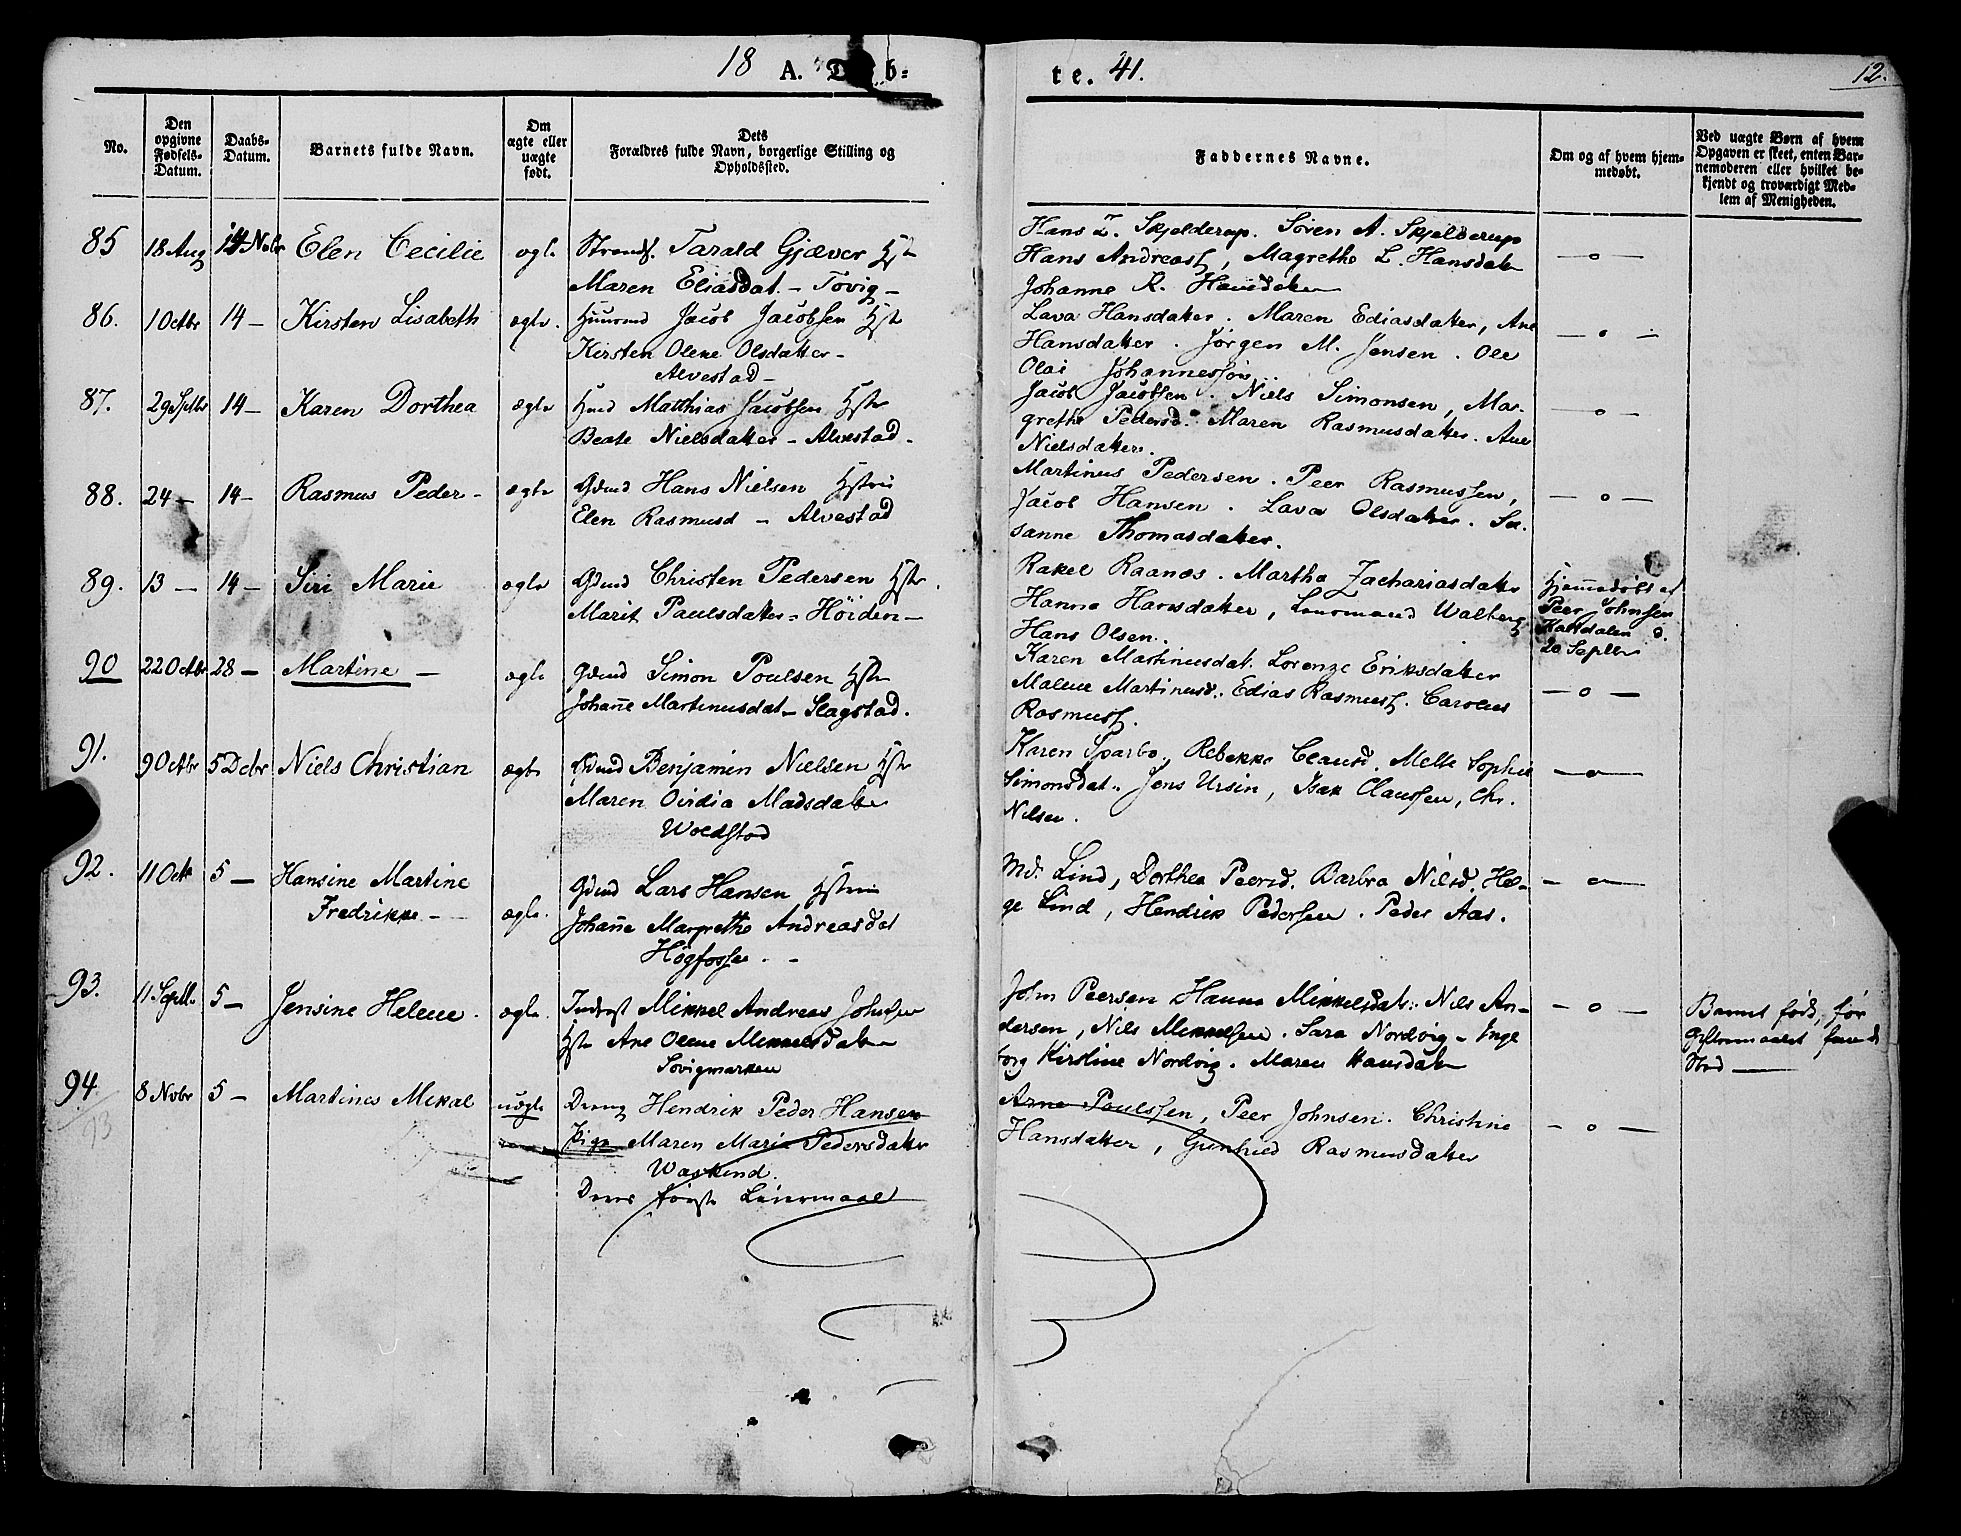 18 A. Døb-
te. 41.
12.
No.
Den opgivne Fødsels-Datum.
Daabs-Datum.
Barnets fulde Navn.
Om ægte eller uægte født.
Dets Forældres fulde Navn, borgerlige Stilling og Opholdssted.
Faddernes Navne.
Om og af hvem hjem-
medøbt.
Ved uægte Børn af hvem
Opgaven er skeet, enten Bar-
nemoderen eller hvilket be-
kjendt og troværdigt Med-
lem af Menigheden.
85 18 Aug 14 Novbr Elen Cecilie ægte Strands. Tarald Gjæver Hstr
Maren Eliasdat. - Tovig -
Hans Z. Skjelderup. Søren A. Skjelderup
Hans Andreass, Magrethe L. Hansdatr
Johanne R. Hansdatter
— o —
86. 1 Octbr 14 - Kirsten Lisabeth ægte. Huusmd Jacob Jacobsen Hstr
Kirsten Olene Olsdatter -
Alvestad -
Lava Hansdatter. Maren Ediasdatter, Ane
Hansdatter. Jørgen M. Jensen. Ole
Olai Johannessøn
— o —
87. 29 Septbr 14 - Karen Dorthea ægte Hmd Matthias Jacobsen Hstr
Beate Nielsdatter - Alvestad -
Jacob Jacobsen. Niels Simonsen, Mar-
grethe Pedersd. Maren Rasmusdatter. Ane
Nielsdatter.
— o —
88. 24 - 14 - Rasmus Peder - ægte Gdmd Hans Nielsen Hstru
Elen Rasmusd - Alvestad
Martinus Pedersen. Peer Rasmussen,
Jacob Hansen. Lava Olsdatter. Su-
sanne Thomasdatter.
— o —
89. 13 - 14 - Siri Marie ægte Gdmd Christen Pedersen Hstr.
Marit Paulsdatter - Höiden -
Rakel Raanæs. Martha Zachariasdatr
Hanna Hansdatter, Lensmand Walberg
Hans Olsen.
Hjemmedöbt af
Peer Johnsen
Kaldalen d.
20 Septbr
90 22 Octbr 28 - Martine - ægte Gdmd Simon Poulsen Hstr
Johane Martinusdat - Slagstad.
Karen Martinusdat. Lorenze Eriksdatter
Malene Martinusd. Edias Rasmuss. Carolus
Rasmuss.
— o —
91. 9 Octbr 5 Decbr Niels Christian ægte Gdmd Benjamin Nielsen Hstr
Maren Oividia Madsdatter
Woldstad
Karen Sparbo, Rebekka Clausd. Melle Sophie
Simonsdat. Jens Ursin, Isak Claussen, Chr.
Nilsen.
— o —
92. 11 Octb 5 - Hansine Martine
Fredrikke - ægte. Gdmd Lars Hansen Hstru
Johane Margrethe Andreasdat
Högfossen. -
Md. Lind, Dorthea Peersd. Barbra Nilsd. Hel-
ge Lind, Hendrik Pedersen. Peder Aas.
— o —
93. 11 Septbr 5 - Jensine Helene. ægte. Inderst Mikkel Andreas Johnsen
Hstr Ane Olene Mikkelsdatter
Sovigmarken
John Peersen Hanna Mikkelsdatr. Nils An-
dersen, Nils Mikkelsen. Sara Nordvig - Inge
borg Kirstine Nordvig. Maren Hansdatr
— o —
Barnet född, för
Giftermaalet fandt
Sted —
94. 8 Novbr 5 - Martines Mikal uægte Dreng Hendrik Peder Hansen
Pige Maren Maria Pedersdatter
Waskind.
Deres förste Leiermaal
Arne Poulssen, Peer Johnsen. Christine
Hansdatter, Gunhild Rasmusdatter
— o —
93